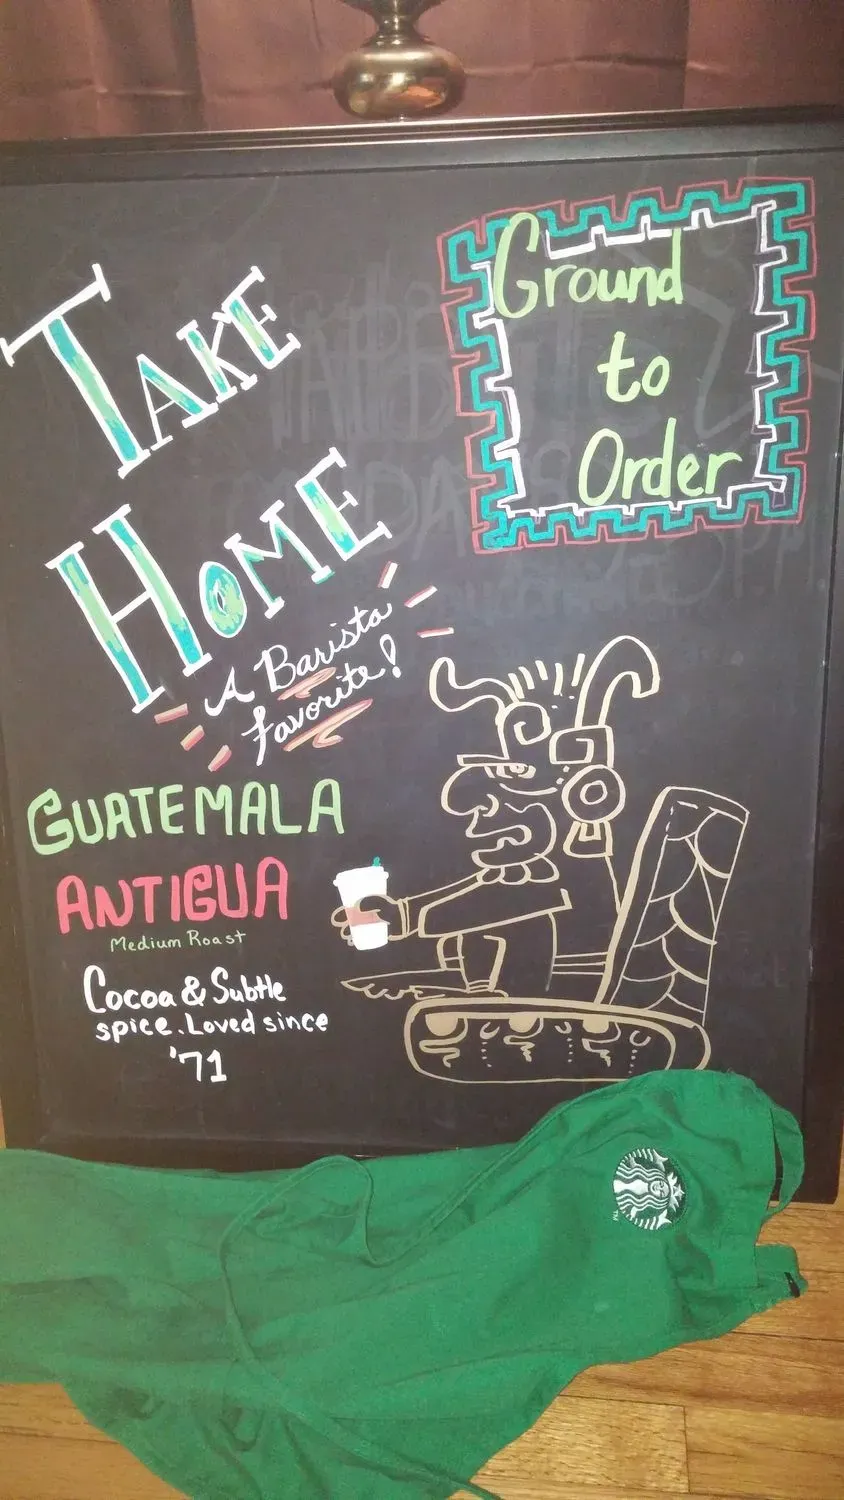 TAKE
HOME
A Barista
Favorite!
Ground
to
Order
GUATEMALA
ANTIGUA
Medium Roast
Cocoa & Subtle
spice. Loved since
'71
TM